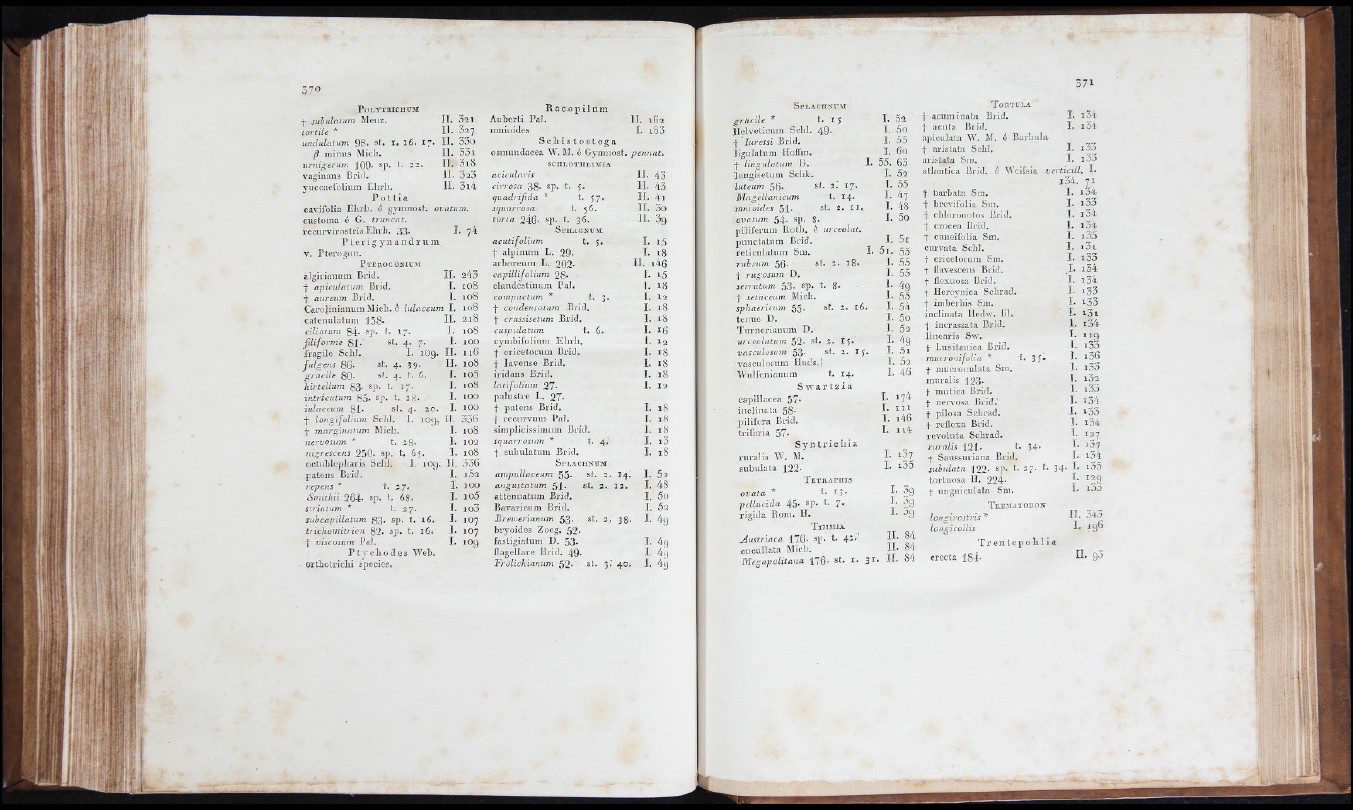 370
POLYTRICHUM
† subulatum Menz. II. 321
tortile * II. 327
undulatum 98. st. 1. 16. 17. II. 330
β minus Mich. II. 331
urnigerum 169. sp. t. 22. II. 318
vaginans Brid. II. 323
yuccaefolium Ehrh. II. 314
Pottia
cavifolia Ehrh. é gymnost. ovatum.
eustoma é G. truncat.
recurvirostris Ehrh. 33. I. 74
Pterigynandrum
v. Pterogon.
PTEROGONIUM
algirianum Brid. II. 243
† apiculatum Brid. I. 108
† aureum Brid. I. 108
Carolinianum Mich. é iulaceum I. 108
catenulatum 158. II. 218
ciliatum 84. sp. t. 17. I. 108
filiforme 81. st. 4. 7. I. 100
fragile Schl. I. 109. II. 116
fulgens 86. st. 4. 39. II. 108
gracile 80. st. 4. t. 6. I. 105
hirtellum 83. sp. t. 17. I. 108
intricatum 85. sp. t. 18. I. 100
iulaceum 81. st. 4. 20. I. 100
† longifolium Schl. I. 109, II. 336
† marginatum Mich. I. 108
nervosum * t. 28. I. 102
nigrescens 250. sp. t. 65. I. 108
octoblepharis Schl. I. 109. II. 336
patens Brid. I. 152
repens * t. 27. I. 100
Smithii 264. sp. t. 68. I. 105
striatum * t. 27. I. 103
subcapillatum 83. sp. t. 16. I. 107
trichomitrion 82. sp. t. 16. I. 107
† viscosum Pal. I. 109
Ptychodes Web.
orthotrichi species.
Racopilum
Auberti Pal. II. 162
mnioides I. 183
Schistostega
osmundacea W. M. é Gymnost. pennat.
SCHLOTHEIMIA
acicularis II. 43
cirrosa 38. sp. t. 5. II. 43
quadrifida * t. 57. II. 41
squarrosa t. 56.
torta 246. sp. t. 36. II. 39
SPHAGNUM
acutifolium t. 5. I. 15
† alpinum L. 29. I. 18
arboreum L. 202. II. 146
capillifolium 28. I. 15
clandestinum Pal. I. 18
compactum * t. 3. I. 12
† condensatum Brid. I. 18
† crassisetum Brid. I. 18
cuspidatum t. 6. I. 16
cymbifolium Ehrh. I. 12
† ericetorum Brid. I. 18
† Javense Brid. I. 18
iridans Brid. I. 18
latifolium 27. I. 12
palustre L. 27.
† patens Brid. I. 18
† recurvum Pal. I. 18
simplicissimum Brid. I. 18
squarrosum * t. 4. I. 13
† subulatum Brid. I. 18
SPLACHNUM
ampullaceum 55. st. 2. 14. I. 52
angustatum 51. st. 2. 12. I. 48
attenuatum Brid. I. 50
Bavaricum Brid. I. 52
Brewerianum 53. st. 2. 38. I. 49
bryoides Zoeg. 52.
fastigiatum D. 53. I. 49
flagellare Brid. 49. I. 49
Frölichianum 52. st. 3. 40. I. 49
371
SPLACHNUM
gracile * t. 15 I. 52
Helveticum Schl. 49. I. 50
† Iuressi Brid. I. 55
ligulatum Hoffm. I. 60
† lingulatum D. I. 55. 63
longisetum Schk. I. 52
luteum 56. st. 2. 17. I. 55
Magellanicum t. 14. I. 47
mnioides 51. st. 2. 11. I. 48
ovatum 54. sp. 8. I. 50
piliferum Roth. é urceolat.
punctatum Brid. I. 51
reticulatum Sm. I. 51. 55
rubrum 56. st. 2. 18. I. 55
† rugosum D. I. 55
serratum 53. sp. t. 8. I. 49
† setaceum Mich. I. 55
sphaericum 55. st. 2. 16. I. 54
tenue D. I. 50
Turnerianum D. I. 52
urceolatum 52. st. 2. 13. I. 49
vasculosum 53. st. 2. 15. I. 51
vasculosum Huds. I. 52
Wulfenianum t. 14. I. 46
Swartzia
capillacea 57. I. 174
inclinata 58. I. 111
pilifera Brid. I. 146
trifaria 57. I. 114
Syntrichia
ruralis W. M. I. 137
subulata 122. I. 135
TETRAPHIS
ovata * t. 13. I. 39
pellucida 45. sp. t. 7. I. 39
rigida Rom. H. I. 39
TIMMIA
Austriaca 176. sp. t. 42. II. 84
cucullata Mich. II. 84
Megapolitana 176. st. 1. 31. II. 84
TORTULA
† acuminata Brid. I. 134
† acuta Brid. I. 134
apiculata W. M. é Barbula
† aristata Schl. I. 133
aristata Sm. I. 133
atlantica Brid. é Weissia verticill. I. 134. 71
† barbata Sm. I. 134
† brevifolia Sm. I. 133
† chloronotos Brid. I. 134
† crocea Brid. I. 134
† cuneifolia Sm. I. 135
curvata Schl. I. 131
† ericetorum Sm. I. 133
† flavescens Brid. I. 134
† flexuosa Brid. I. 134
† Hercynica Schrad. I. 133
† imberbis Sm. I. 133
inclinata Hedw. fil. I. 131
† incrassata Brid. I. 134
linearis Sw. I. 119
† Lusitanica Brid. I. 133
mucronifolia * t. 35. I. 136
† mucronulata Sm. I. 133
muralis 123. I. 132
† mutica Brid. I. 133
† nervosa Brid. I. 134
† pilosa Schrad. I. 133
† reflexa Brid. I. 134
revoluta Schrad. I. 127
ruralis 121. t. 34. I. 137
† Saussuriana Brid. I. 134
subulata 122. sp. t. 27. t. 34. I. 135
tortuosa H. 224. I. 129
† unguiculata Sm. I. 133
TREMATODON
longirostris * II. 343
longicollis I. 196
Trentepohlia
erecta 184. II. 93